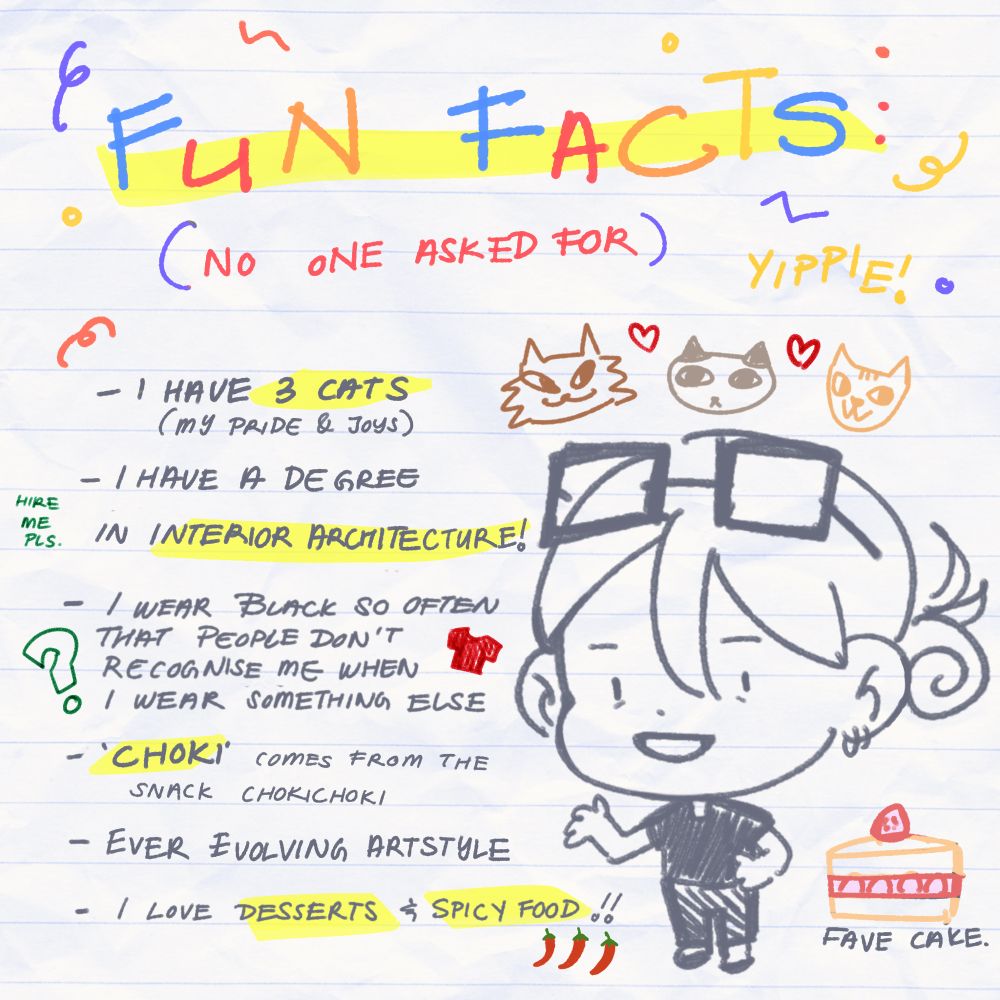 FUN FACTS:
(NO ONE ASKED FOR)
YIPPIE!
- I HAVE 3 CATS
(MY PRIDE & JOYS)
- I HAVE A DEGREE
IN INTERIOR ARCHITECTURE!
HIRE
ME
PLS.
- I WEAR BLACK SO OFTEN
THAT PEOPLE DON'T
RECOGNISE ME WHEN
I WEAR SOMETHING ELSE
?
- 'CHOKI' COMES FROM THE
SNACK CHOKICHOKI
- EVER EVOLVING ARTSTYLE
- I LOVE DESSERTS & SPICY FOOD!!
FAVE CAKE.